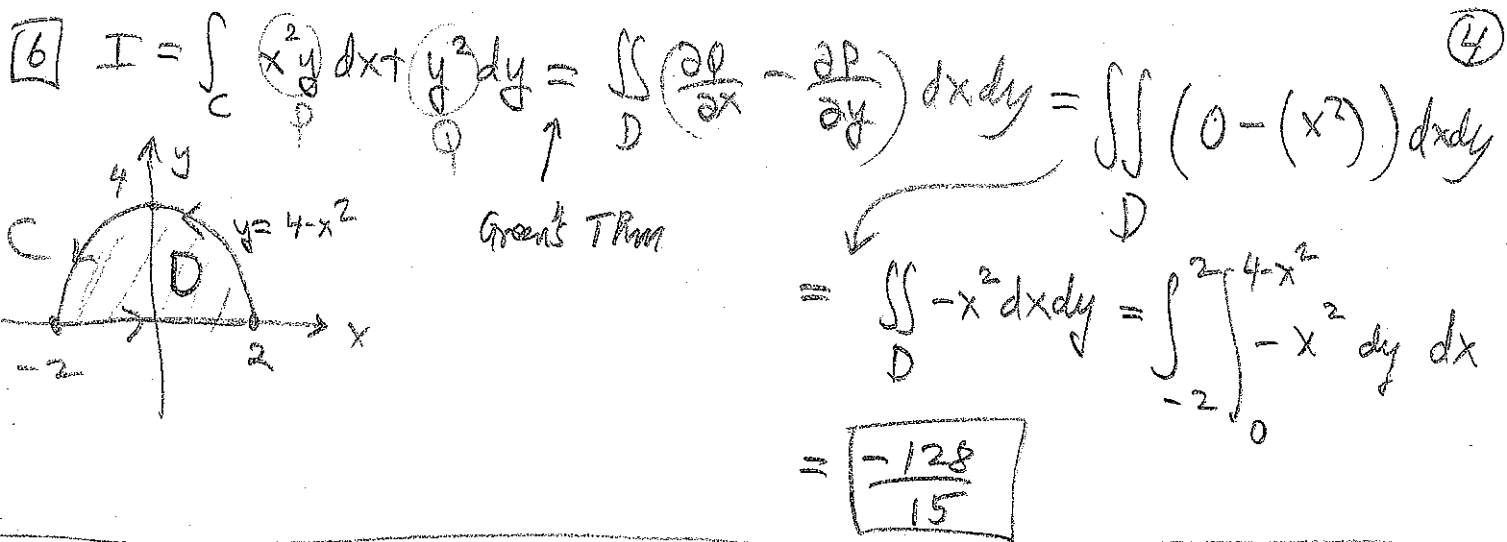 6 I = ∫_C x²y dx + y² dy = ∬_D (∂Q/∂x - ∂P/∂y) dxdy = ∬_D (0 - (x²)) dxdy
P Q
4
Green's Thm
4 y
C y = 4-x²
D
-2 2 x
= ∬_D -x² dxdy = ∫_{-2}^{2} ∫_0^{4-x²} -x² dy dx
= -128/15